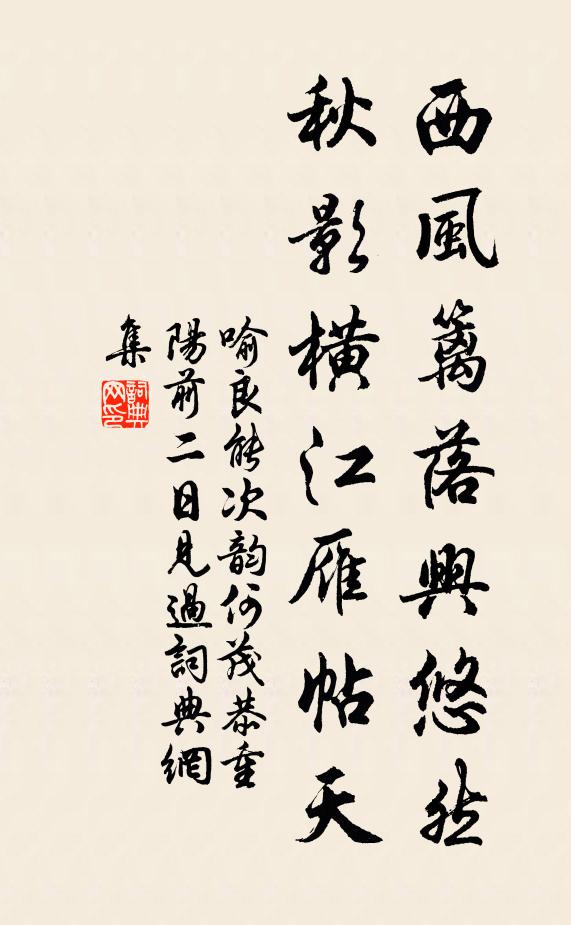 西風籬落興悠然
秋影橫江雁帖天
喻良能次韵何茂恭重
陽前二日見過詞典網
集
詞典
网印